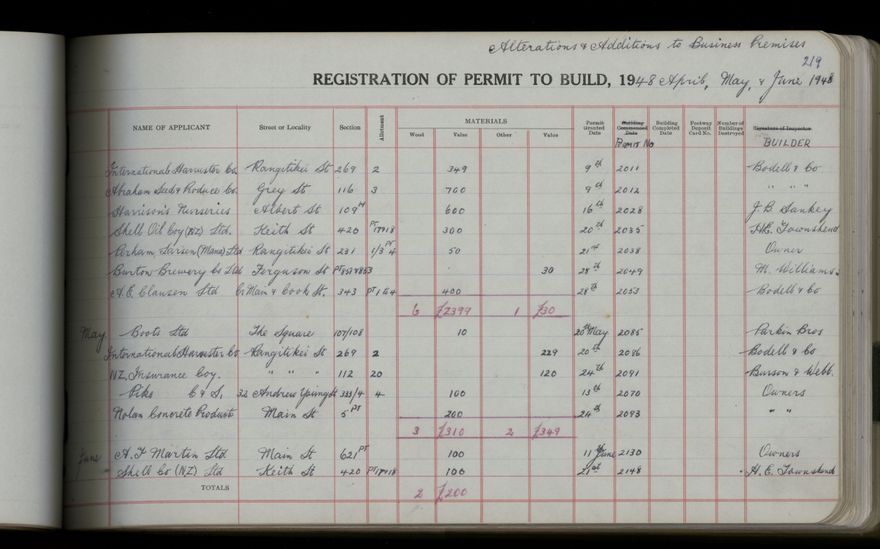 Alterations & Additions to Business Premises
219
REGISTRATION OF PERMIT TO BUILD, 1948 April, May, & June 1948
NAME OF APPLICANT Street or Locality Section Allotment MATERIALS Permit Granted Date Building Commenced Date Building Completed Date Footway Deposit Card No. Number of Buildings Destroyed Signature of Inspector
Wood Value Other Value PERMIT No BUILDER
International Harvester Co. Rangitikei St 269 2 349 9th 2011 Bodell & Co
Abraham Seed & Produce Co. Grey St 116 3 700 9th 2012 " " "
Harrison's Nurseries Albert St 109 600 16th 2028 J B Sankey
Shell Oil Coy (NZ) Ltd. Keith St 420 PT 17&18 300 20th 2035 H.E. Townshend
Perham, Larsen (Mana) Ltd Rangitikei St 231 1/3 PT 4 50 21st 2038 Owner
Burton Brewery Co Ltd Ferguson St 30 28th 2049 M. Williams
A.E. Clausen Ltd C/ Main & Cook St. 343 PT 1 400 28th 2053 Bodell & Co
6 £2399 1 £30
May Boots Ltd The Square 107/108 10 20th May 2085 Parkin Bros
International Harvester Co Rangitikei St 269 2 229 20th 2086 Bodell & Co
NZ. Insurance Coy. " " " 112 20 120 24th 2091 Burson & Webb.
Pike C & S. 32 Andrew Young St 333/4 4 100 13th 2070 Owners
Nolan Concrete Products Main St 5 PT 200 24th 2093 " "
3 £310 2 £349
June A.F Martin Ltd Main St 621 PT 100 11th June 2130 Owners
" Shell Co (NZ) Ltd Keith St 420 PT 17&18 100 21st 2148 H. E. Townshend
TOTALS 2 £200